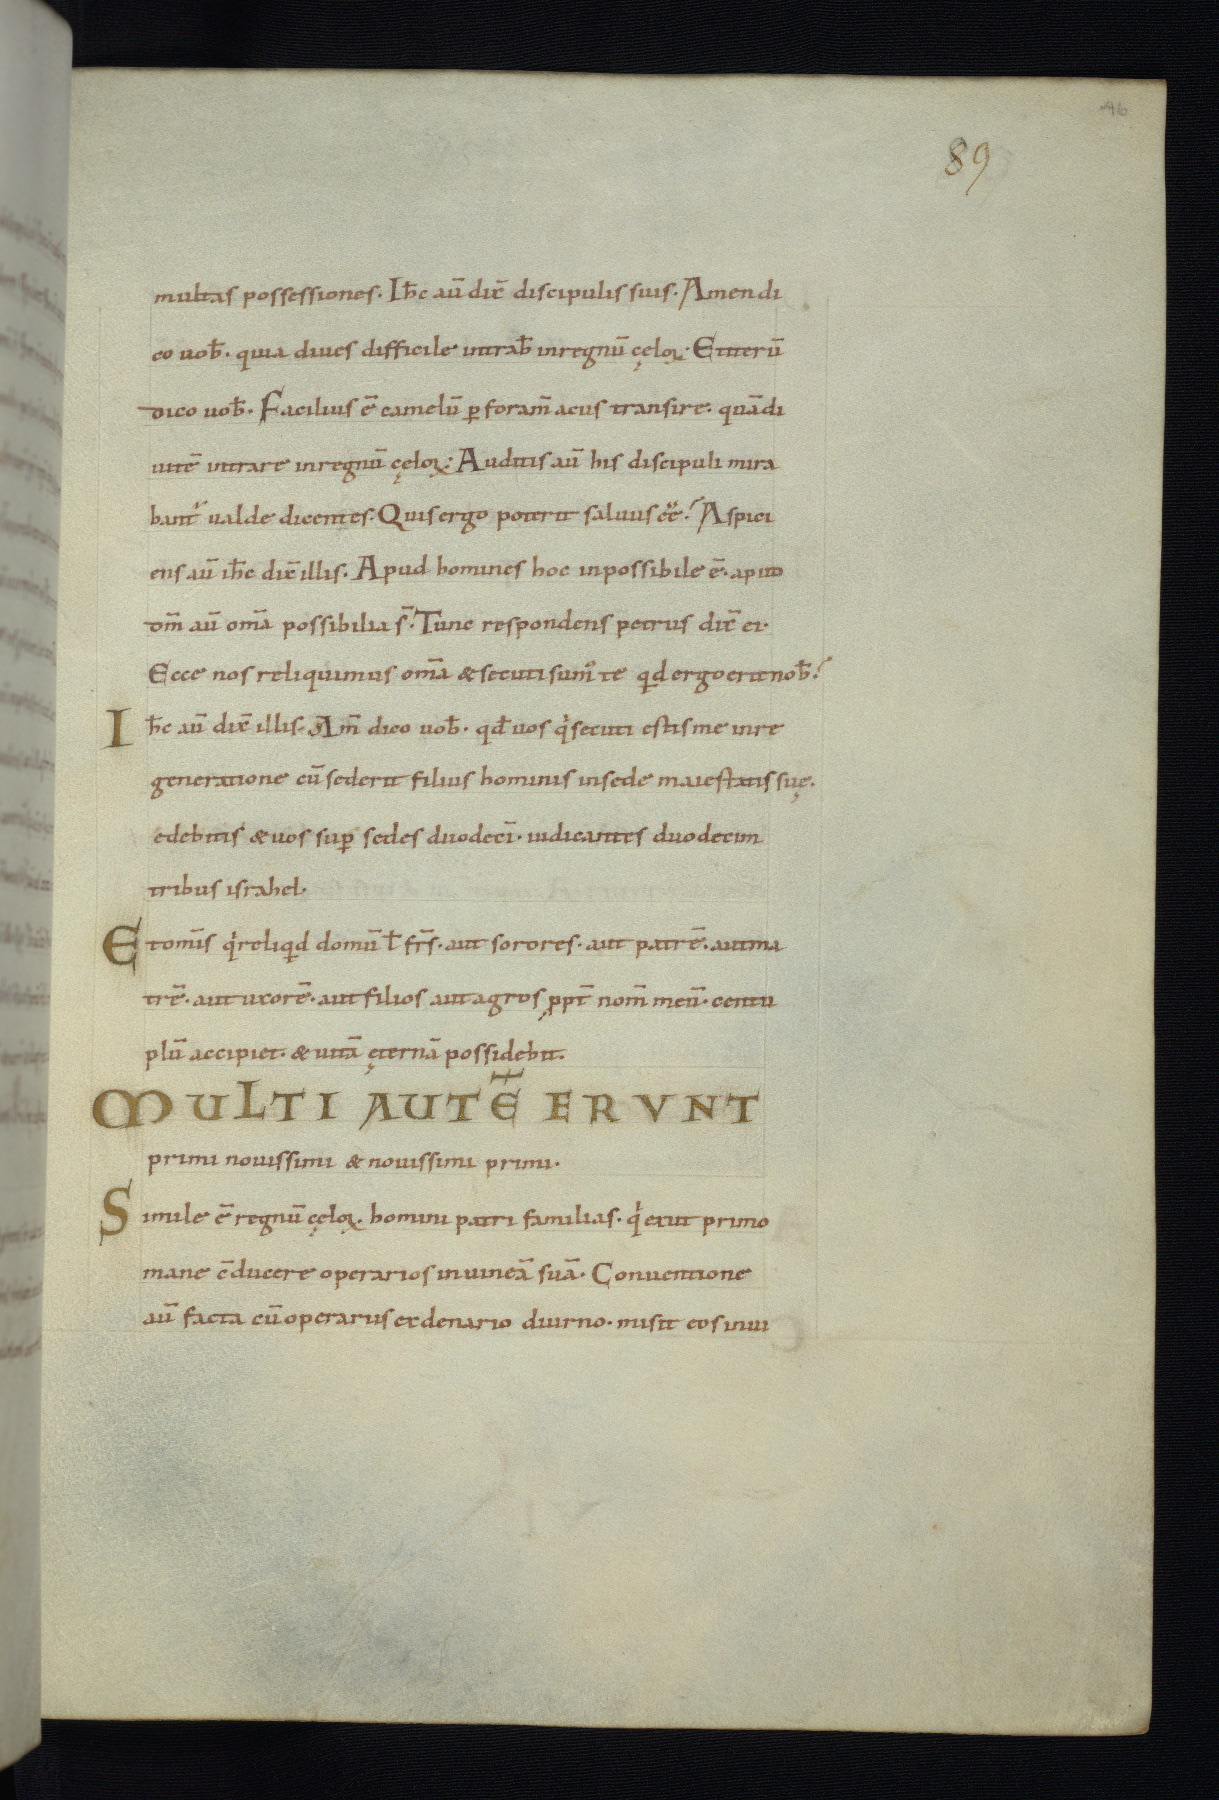 46
89
multas possessiones. Ih̄c aū dix̄ discipulis suis. Amen di
co uob̄. quia diues difficile intrab̄ inregnū cęloꝝ. Et iterū
dico uob̄. Facilius ē camelū ꝑ foram̄ acus transire. quā di
uitē intrare inregnū cęloꝝ. Auditis aū his discipuli mira
bant᷑ ualde dicentes. Quis ergo poterit saluus eē? Aspici
ens aū ih̄c dix̄ illis. Apud homines hoc inpossibile ē. apud
dm̄ aū oma̅ possibilia s̄. Tunc respondens petrus dix̄ ei.
Ecce nos reliquimus oma̅ & secuti sum᷒ te qd ergo erit nob̄?
Ih̄c aū dix̄ illis. Am̄ dico uob̄. qd̄ uos qͥ secuti estis me inre
generatione cū sederit filius hominis insede maiestatis suę.
edebitis & uos sup̄ sedes duodecī. iudicantes duodecim
tribus israhel.
Et omīs qͥ reliqͥd domū ł fr̄s. aut sorores. aut patrē. aut ma
trē. aut uxorē. aut filios aut agros ꝓpt̄ nom̄ meū. centu
plū accipiet. & uitā ęternā possidebit.
MULTI AUTĒ ERVNT
primi nouissimi & nouissimi primi.
Simile ē regnū cęloꝝ. homini patri familias. qͥ exiit primo
mane c̄ducere operarios inuineā suā. Conuentione
aū facta cū operariis ex denario diurno. misit eos inui